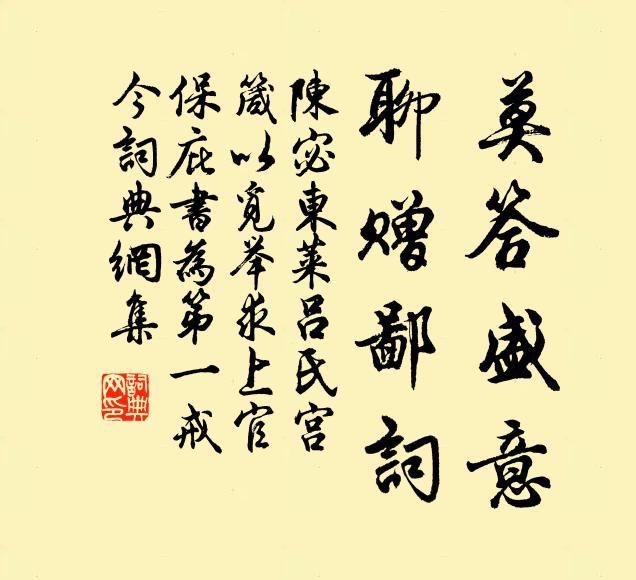 莫答盛意
聊贈鄙詞
陳宓東萊呂氏宫
箴以覓举求上官
保庇書為第一戒
今詞典網集
詞典网印